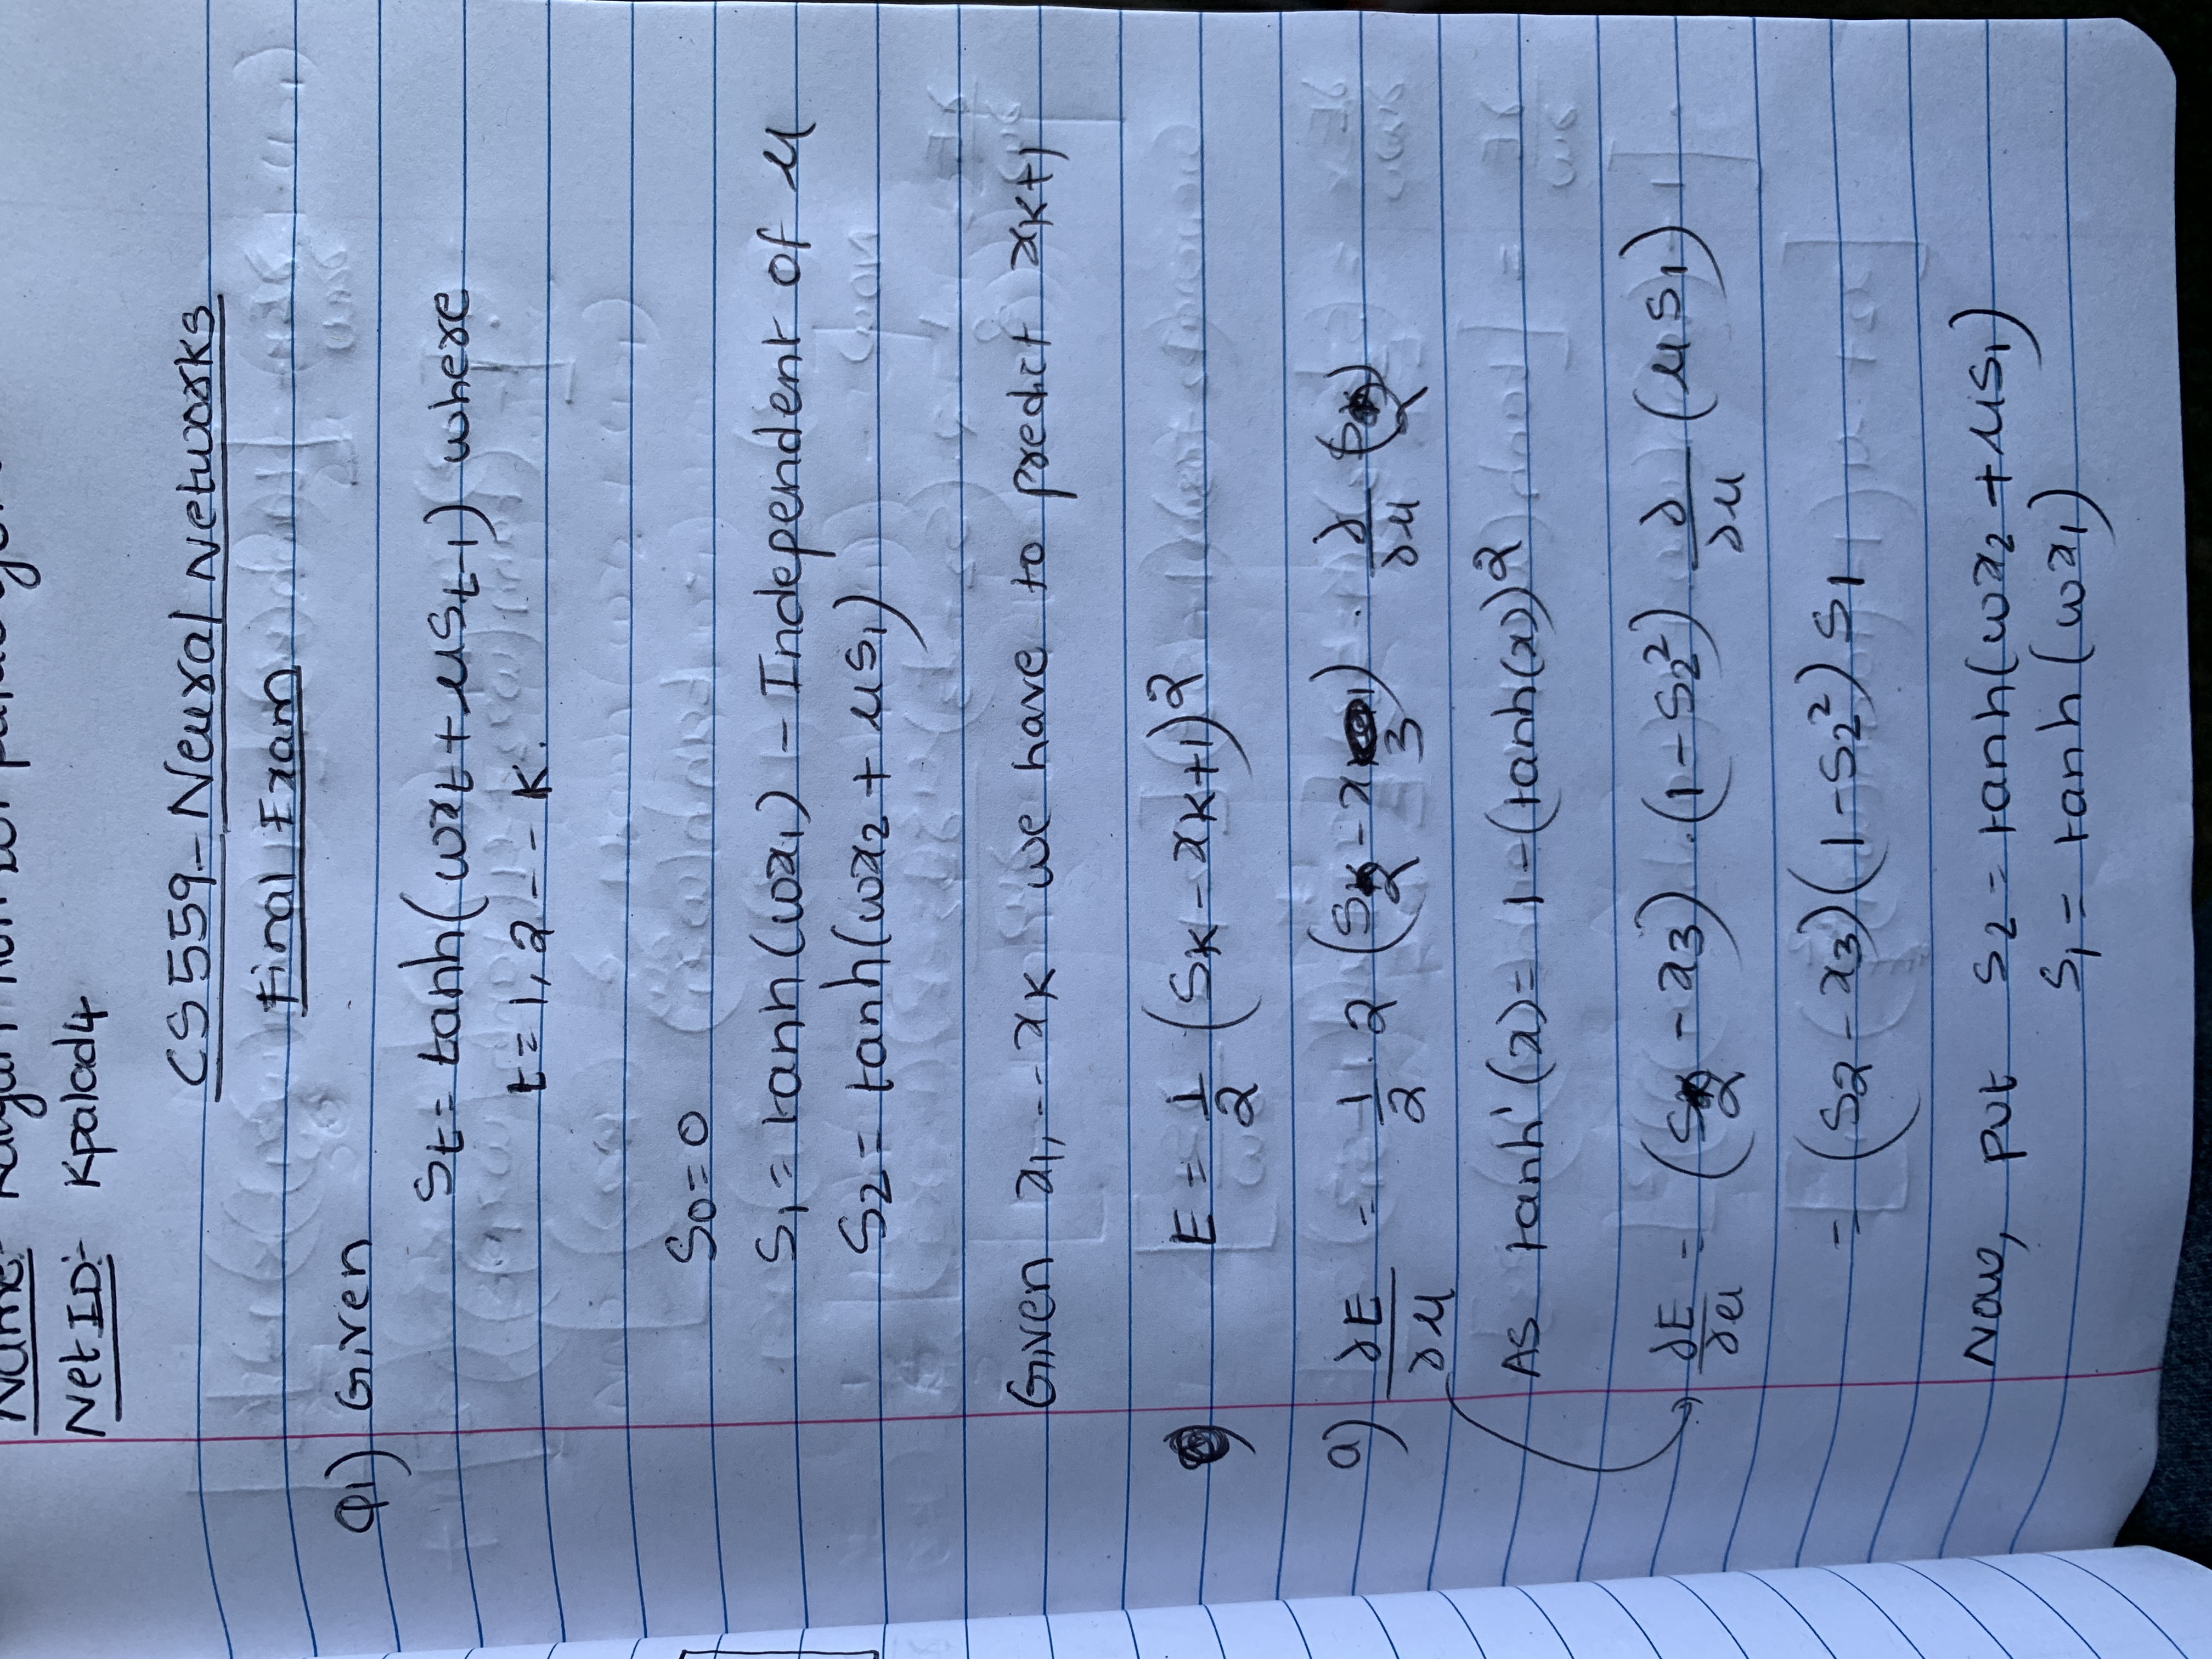 Name:-
Net ID:- Kpalad4
CS 559- Neural Networks
Final Exam
Q1) Given
St = tanh(wxt + μSt-1) where
t = 1, 2 -- K.
S0 = 0
S1 = tanh(wx1) - Independent of μ
S2 = tanh(wx2 + μS1)
Given x1, -- xK we have to predict xK+1
E = 1/2 (SK - xK+1)^2
a) ∂E/∂μ = 1/2 . 2 (S2 - x3) . ∂/∂μ (S2)
As tanh'(x) = 1 - (tanh(x))^2
∂E/∂μ = (S2 - x3) . (1 - S2^2) . ∂/∂μ (μS1)
= (S2 - x3)(1 - S2^2) S1
Now, put S2 = tanh(wx2 + μS1)
S1 = tanh(wx1)